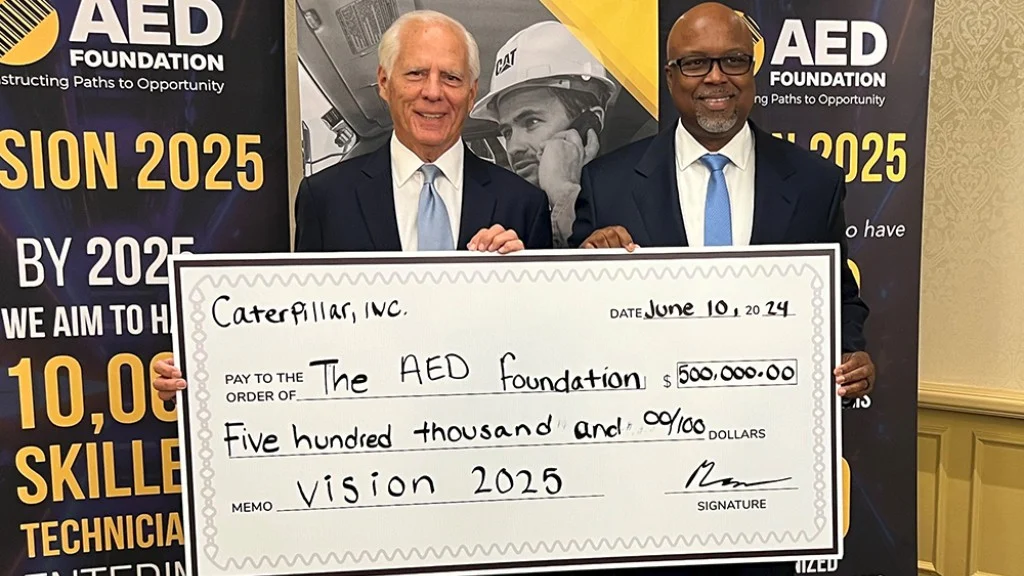 AED
FOUNDATION
nstructing Paths to Opportunity
SION 2025
BY 2025
WE AIM TO HA
10,00
SKILLE
TECHNICIA
ENTERIN
CAT
AED
FOUNDATION
ng Paths to Opportunity
N 2025
o have
IZED
Caterpillar, INC.
DATE June 10, 20 24
PAY TO THE
ORDER OF The AED foundation $ 500,000.00
Five hundred thousand and 00/100 DOLLARS
MEMO Vision 2025
SIGNATURE